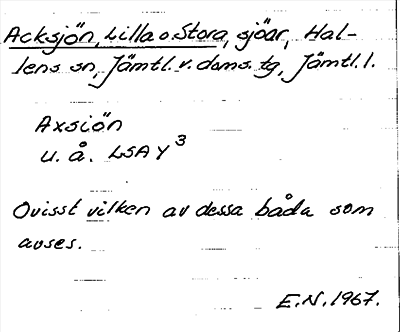 Acksjön, Lilla o Stora, sjöar, Hal-
lens sn, Jämtl. v. doms. tg, Jämtl. l.
Axsiön
u. å. LSA Y 3
Ovisst vilken av dessa båda som
avses.
E.N. 1967.